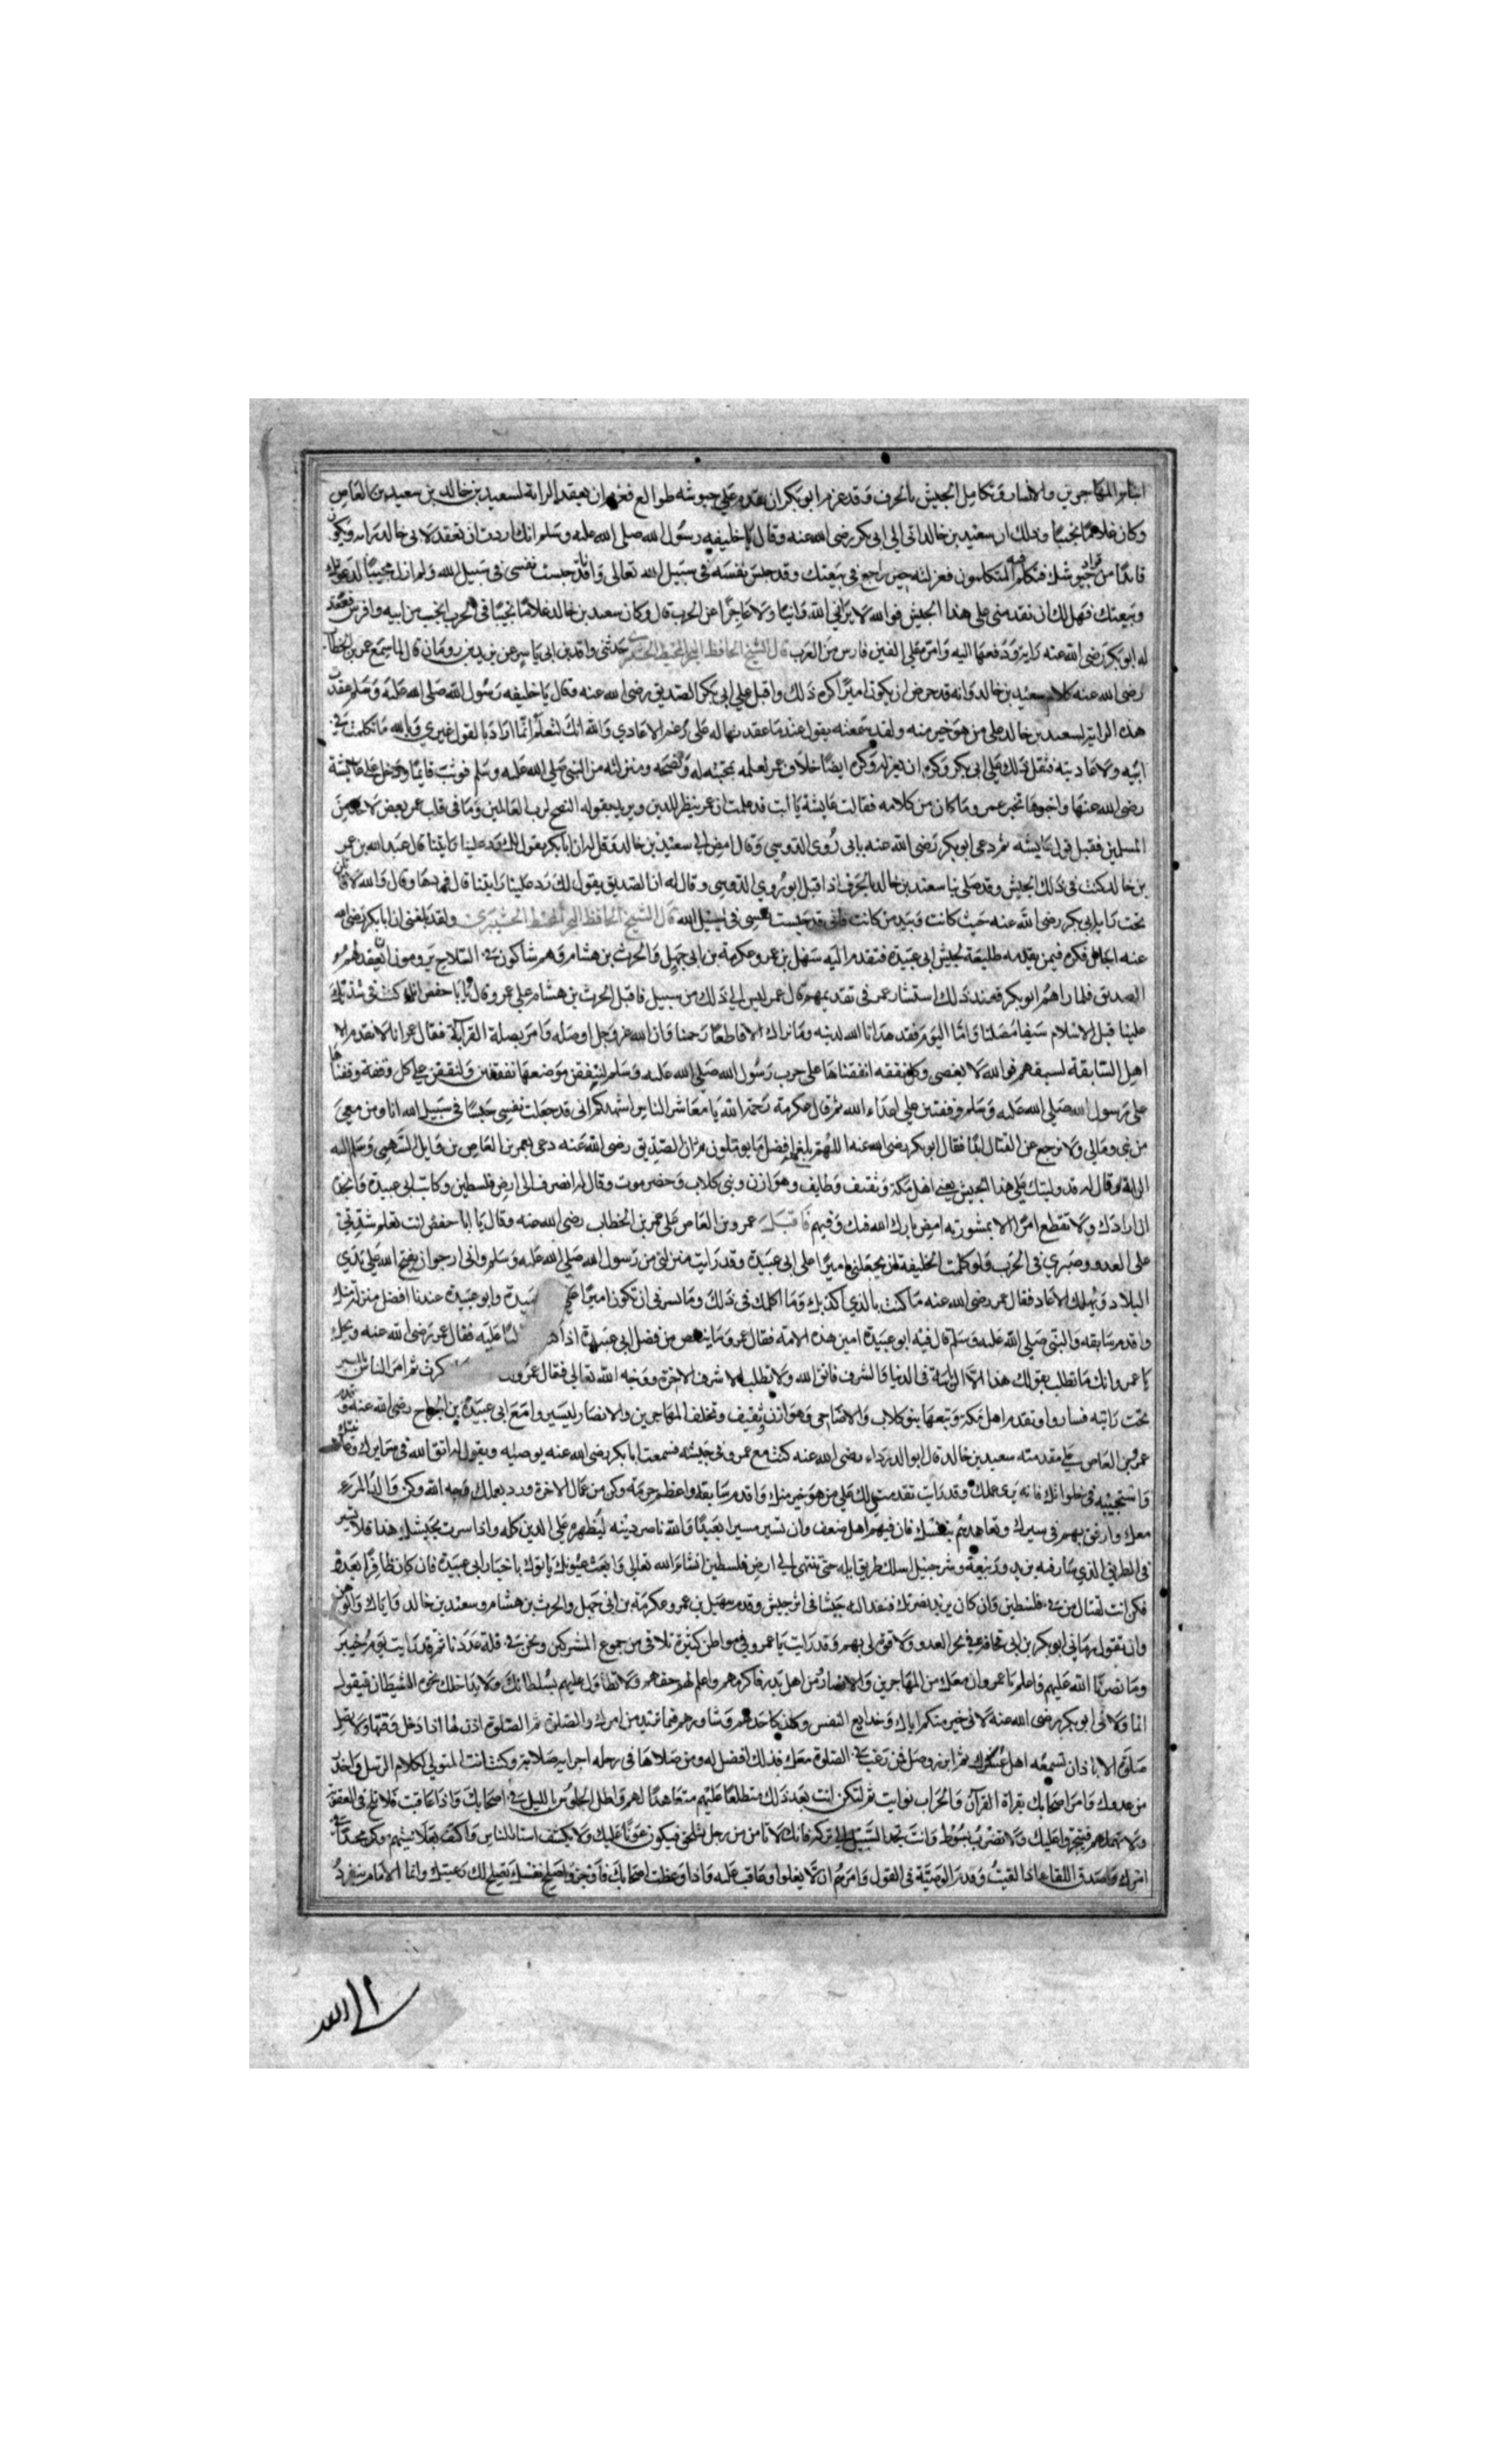 ابناء المهاجرين والانصار وتكامل الجيش بالجرف وقد عزم ابو بكر ان يقدم علي جيوشه طوالع فعزم ان يعقد الراية لسعيد بن خالد بن سعيد بن العاص
وكان غلاما نجيبا وذلك ان سعيد بن خالد اتى الى ابى بكر رضى الله عنه وقال يا خليفه رسول الله صلى الله عليه وسلم انك اردت ان تعقد لابى خالد راية ويكون
قايدًا من قواد جيوشك فتكلم فيه المتكلمون فعزلته حين راجع في بيعتك وقد حبس نفسه في سبيل الله تعالى وانا قد حبست نفسى فى سبيل الله ولم ازل مجيبا لدعوتك
وبيعتك فهل لك ان تقدمنى على هذا الجيش فوالله لا يرانى الله وانيا ولا عاجزا عن الحرب قال وكان سعيد بن خالد غلاما نجيبا فى الحرب انجب من ابيه وافرس فعقد
له ابو بكر رضى الله عنه راية ودفعها اليه وامره على الفين فارس من العرب قال الشيخ الحافظ حدثنى واقد بن ابى ياسر عن يزيد بن رومان قال لما سمع عمر بن الخطاب
رضى الله عنه كلام سعيد بن خالد وانه قد حرض ان يكون اميرا كره ذلك واقبل على ابى بكر الصديق رضى الله عنه وقال يا خليفه رسول الله صلى الله عليه وسلم عقدت
هذه الراية لسعيد بن خالد على من هو خير منه ولقد سمعته يقول عند ما عقدتها له على رغم الاعادي والله انك لتعلم انما اراد بالقول غيري والله ما تكلمت فى
ابيه ولا عاديته فثقل ذلك على ابى بكر وكره ان يعزله وكره ايضا خلاف عمر لعلمه بمحبته له ونصحه ومنزلته من النبى صلى الله عليه وسلم فوثب قايما ودخل على عايشة
رضى الله عنها واخبرها بخبر عمر وما كان من كلامه فقالت عايشة يا ابت قد علمت ان عمر ينظر للدين ويريد بقوله النصح لرب العالمين وما فى قلب عمر بغض لاحد من
المسلمين فقبل قول عايشه ثم دعى ابو بكر رضى الله عنه بابى روى الدوسي وقال امض الى سعيد بن خالد وقل له ان ابا بكر يقول لك رد علينا رايتنا قال عبد الله بن عمر
بن خالد كنت فى ذلك الجيش وقد صلى بنا سعيد بن خالد بالجرف اذ اقبل ابو روى الدوسي وقال له ان الصديق يقول لك رد علينا رايتنا قال فردها وقال والله لاقاتلن
تحت راية ابى بكر رضى الله عنه حيث كانت وبيد من كانت فانى قد حبست نفسى فى سبيل الله قال الشيخ الحافظ ولقد بلغنى ان ابا بكر رضى الله
عنه اجال فكره فيمن يقدمه طليعة لجيش ابى عبيدة فتقدم اليه سهل بن عمرو وعكرمة بن ابى جهل والحرث بن هشام وهم شاكون فى السلاح يرومون ان يعقد لهم
الصديق فلما راهم ابو بكر فعند ذلك استشار عمر فى تقديمهم قال عمر ليس الى ذلك من سبيل فاقبل الحرث بن هشام على عمر وقال يا ابا حفص انك كنت فى شدتك
علينا قبل الاسلام سيفا مضلتا واما اليوم فقد هدانا الله لدينه وما نراك الا قاطعا رحمنا وان الله عز وجل اوصله وامر بصلة القرابة فقال عمر انا لا نقدم الا
اهل السابقة لسبقهم فوالله لا يعصى وكل نفقه انفقناها على حرب رسول الله صلى الله عليه وسلم لننفقن موضعها نفقتين ولنقفن على كل وقفة وقفناها
على رسول الله صلى الله عليه وسلم وقفتين على اعداء الله ثم قال عكرمة رحمه الله يا معاشر الناس اشهدكم انى قد جعلت نفسى حبسا فى سبيل الله انا ومن معى
من بنى ومالى ولا نرجع عن القتال ابدا فقال ابو بكر رضى الله عنه اللهم بلغهم افضل ما يوملون ثم ان الصديق رضى الله عنه دعى بعمرو بن العاص بن وايل السهمى وسلم اليه
الراية وقال له قد وليتك على هذا الجيش يعنى اهل مكة وثقيف وطايف وهوازن وبنى كلاب وحضرموت وقال له انصرف الى ارض فلسطين وكاتب ابى عبيدة وانجده
ان ارادك ولا تقطع امرا الا بمشورته امض بارك الله فيك وفيهم فاقبل عمرو بن العاص على عمر بن الخطاب رضى الله عنه وقال يا ابا حفص انت تعلم شدتى
على العدو وصبري فى الحرب فلو كلمت الخليفة ان يجعلنى اميرا على ابى عبيدة وقد رايت منزلتى من رسول الله صلى الله عليه وسلم وانى ارجوا ان يفتح الله على يدي
البلاد ويهلك الاعاد فقال عمر رضى الله عنه ما كنت بالذي اكذبك وما اكلمك فى ذلك وما نسر فى ان تكون اميرا على وابو عبيدة عندنا افضل منزلة منك
واقدم سابقه والنبى صلى الله عليه وسلم قال فيه ابو عبيدة امين هذه الامه فقال عمرو وما ينقص من فضل ابى عبيدة اذا عليه فقال عمر رضى الله عنه ويحك
يا عمرو انك ما تطلب بقولك هذا الا الرياسة فى الدنيا والشرف فاتق الله ولا تطلب الا شرف الاخرة ووجه الله تعالى فقال عمرو ثم امر الناس بالمسير
تحت رايته فساروا وتقدم اهل مكة وتبعها بنو كلاب وهوازن وثقيف وتخلف المهاجرين والانصار ليسيروا مع ابى عبيدة بن الجراح رضى الله عنه وقدم
عمرو بن العاص على مقدمته سعيد بن خالد قال ابو الدرداء رضى الله عنه كنت مع عمرو فى جيشه فسمعت ابا بكر رضى الله عنه يوصيه ويقول له اتق الله فى سرايرك
واستحييه فى خلواتك فانه يرى عملك وقد رايت تقدمتى لك على من هو خير منك واقدم سابقه واعظم حرمة وكن من عمال الاخرة وورد بعملك وجه الله وكن والدا لمن
معك وارفق بهم فى سيرك وتعاهدهم بنفسك فان فيهم اهل ضعف وان تسير مسيرا بعيدا والله ناصر دينه ليظهره على الدين كله واذا سرت بجيشك هذا فلا تسير
فى الطريق الذي سار فيه يزيد وربيعة وشرحبيل اسلك طريق ايله حتى تنتهى الى ارض فلسطين انشاء الله تعالى وابعث عيونك ياتوك باخبار ابى عبيدة فان كان ظافرا بعدوه
فكن انت لقتال من فى فلسطين وان كان يريد نصرتك فنفذ اليه جيشا فى اثر جيش وقدم سهيل بن عمرو وعكرمة بن ابى جهل والحرث بن هشام وسعيد بن خالد واياك
وان تقول رمانى ابو بكر بن ابى قحافة فى نحر العدو ولا قوة لى بهم وقد رايت يا عمرو فى مواطن كثيرة نلاقى من جموع المشركين ونحن فى قلة عددنا ثم قد رايت يوم خيبر
وما نصرنا الله عليهم واعلم يا عمرو ان معك من المهاجرين والانصار من اهل بدر فاكرمهم واعلم لهم حقهم ولا تطاول عليهم بسلطانك ولا يداخلك نخوه الشيطان فيقول
انما ولانى ابو بكر رضى الله عنه لانى خيرمنكم اياك وخدايع النفس وكن كاحدهم وشاورهم فيما تريد من امرك والصلوة ثم الصلوة اذن لها اذا دخل وقتها ولا تصل
صلوة الا باذان تسمعه اهل عسكرك ثم ابرز وصل فمن رغب فى الصلوة معك فذلك افضل له ومن صلاها فى رحله اجزاته صلاته وكنت انت المتولى لكلام الرسل واحذر
من عدوك وامر اصحابك بقراة القرآن والحراب نوايب ثم لتكن انت بعد ذلك مطلعا عليهم متعاهدا لهم واطل الجلوس بالليل فى اصحابك واذا عاقبت فلا تلج فى العقوبة
ولا تضرب بسوط وانت تجد السبيل الى تركه فانك لا تامن من رجل ان يلحق فيكون عونا عليك ولا تكشف استار الناس واكتف بعلانيتهم وكن مجدا فى
امرك واصدق اللقا اذا لقيت وقدم الوصية فى القول وامرهم ان لا يغلوا وعاقب عليه واذا وعظت اصحابك فاوجز واصلح نفسك تصلح لك رعيتك وانما الامام ينفرد
الى الله